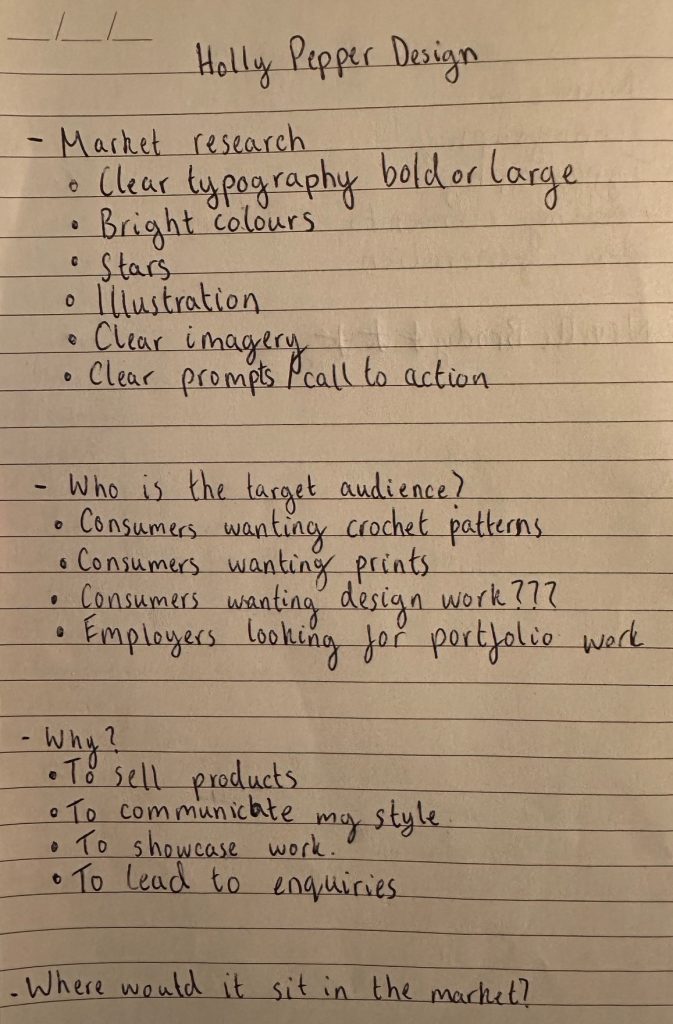 __/__/__
Holly Pepper Design
- Market research
• Clear typography bold or large
• Bright colours
• Stars
• Illustration
• Clear imagery
• Clear prompts / call to action
- Who is the target audience?
• Consumers wanting crochet patterns
• Consumers wanting prints
• Consumers wanting design work???
• Employers looking for portfolio work
- Why?
• To sell products
• To communicate my style.
• To showcase work.
• To lead to enquiries
- Where would it sit in the market?